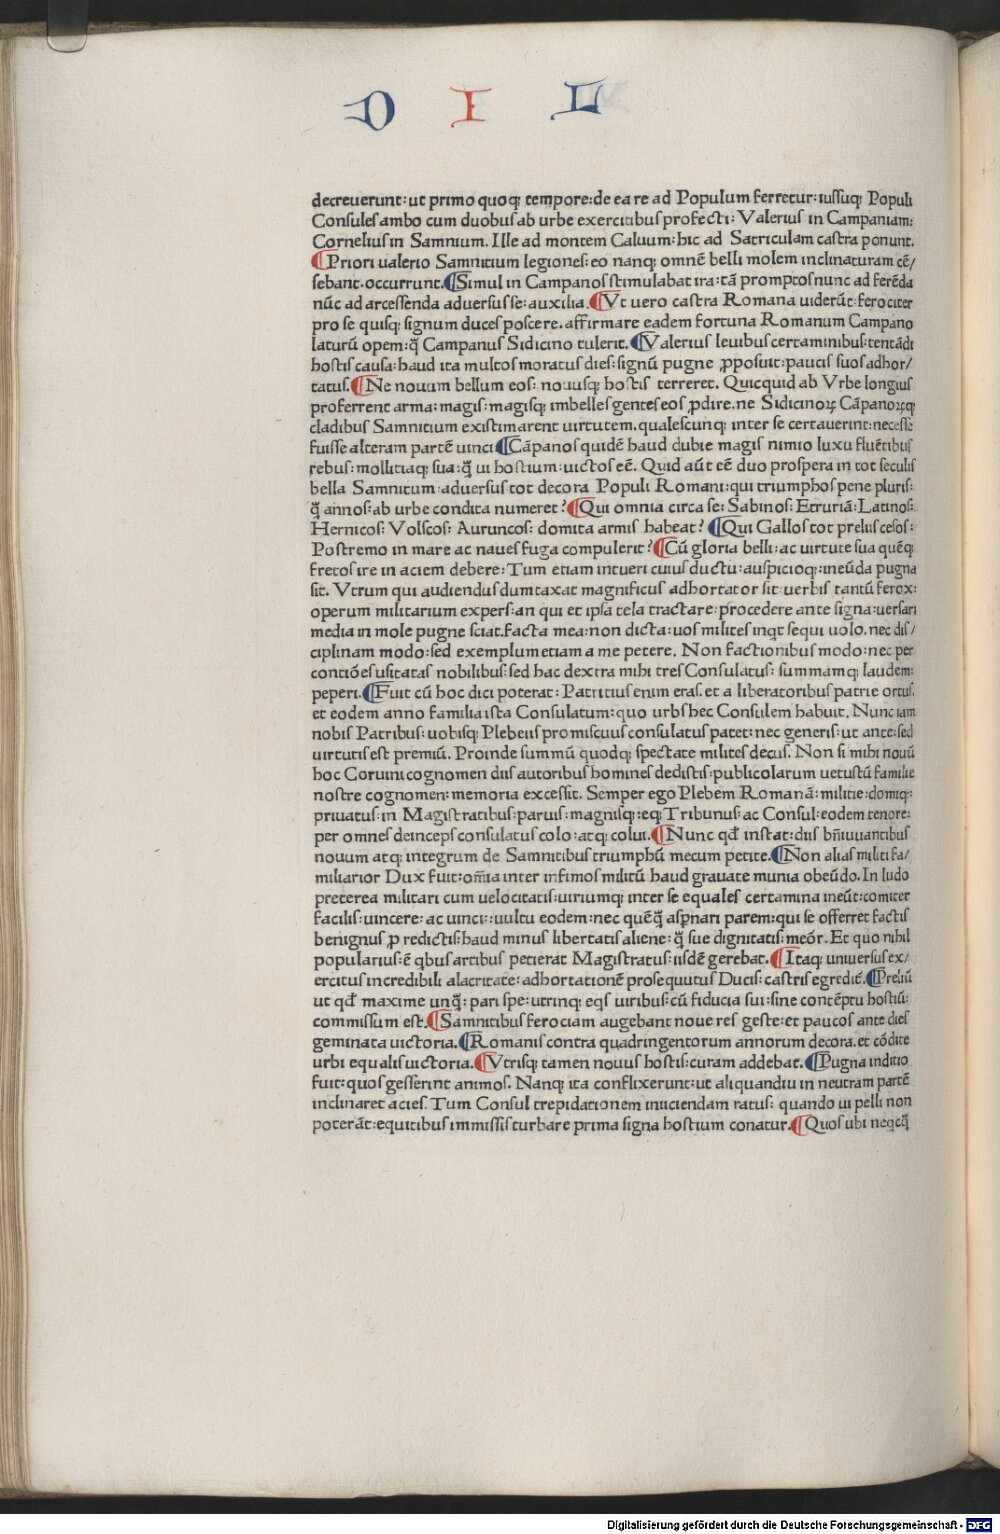 D I L
decreuerunt: ut primo quoq; tempore: de ea re ad Populum ferretur: iussuq; Populi
Consules ambo cum duobus ab urbe exercitibus profecti: Valerius in Campaniam:
Cornelius in Samnium. Ille ad montem Caluum: hic ad Satriculam castra ponunt.
¶Priori ualerio Samnitium legiones: eo nanq; omnē belli molem inclinaturam cē/
sebant. occurrunt. ¶Simul in Campanos stimulabat ira: tā promptos nunc ad ferēda
nūc ad arcessenda aduersus se: auxilia. ¶Vt uero castra Romana uiderūt: ferociter
pro se quisq; signum duces poscere. affirmare eadem fortuna Romanum Campano
laturū opem: q̄ Campanus Sidicino tulerit. ¶Valerius leuibus certaminibus: tentādi
hostis causa: haud ita multos moratus dies: signū pugne ꝓposuit: paucis suos adhor/
tatus. ¶Ne nouum bellum eos: nouusq; hostis terreret. Quicquid ab Vrbe longius
proferrent arma: magis: magisq; imbelles gentes eos ꝓdire. ne Sidicinoꝝ Cāpanoꝝq;
cladibus Samnitium existimarent uirtutem. qualescunq; inter se certauerint: necesse
fuisse alteram partē uinci ¶Cāpanos quidē haud dubie magis nimio luxu fluētibus
rebus: mollitiaq; sua: q̄ ui hostium: uictos eē. Quid aūt eē duo prospera in tot seculis
bella Samnitum aduersus tot decora Populi Romani: qui triumphos pene pluris:
q̄ annos: ab urbe condita numeret? ¶Qui omnia circa se: Sabinos: Etruriā: Latinos:
Hernicos: Volscos: Auruncos: domita armis habeat? ¶Qui Gallos tot preliis cesos:
Postremo in mare ac naues fuga compulerit? ¶Cū gloria belli: ac uirtute sua quēq;
fretos ire in aciem debere: Tum etiam intueri cuius ductu: auspicioq;: ineūda pugna
sit. Vtrum qui audiendus dumtaxat magnificus adhortator sit: uerbis tantū ferox:
operum militarium expers: an qui et ipsa tela tractare: procedere ante signa: uersari
media in mole pugne sciat. facta mea: non dicta: uos milites inqt sequi uolo. nec dis/
ciplinam modo: sed exemplum etiam a me petere. Non factionibus modo: nec per
contiōes usitatas nobilibus: sed hac dextra mihi tres Consulatus: summamq; laudem:
peperi. ¶Fuit cū hoc dici poterat: Patritius enim eras. et a liberatoribus patrie ortus.
et eodem anno familia ista Consulatum: quo urbs hec Consulem habuit. Nunc iam
nobis Patribus: uobisq; Plebeiis promiscuus consulatus patet: nec generis: ut ante: sed
uirtutis est premiū. Proinde summū quodq; spectate milites decus. Non si mihi nouū
hoc Coruini cognomen diis autoribus homines dedistis: publicolarum uetustū familie
nostre cognomen: memoria excessit. Semper ego Plebem Romanā: militie: domiq;:
priuatus: in Magistratibus: paruis: magnisq;: eq; Tribunus: ac Consul: eodem tenore:
per omnes deinceps consulatus colo: atq; colui. ¶Nunc qđ instat: diis bn̄iuuantibus
nouum atq; integrum de Samnitibus triumphū mecum petite. ¶Non alias militi fa/
miliarior Dux fuit: om̄ia inter infimos militū haud grauate munia obeūdo. In ludo
preterea militari cum uelocitatis: uiriumq; inter se equales certamina ineūt: comiter
facilis: uincere: ac uinci: uultu eodem: nec quēq̄ asp̄nari parem: qui se offerret factis
benignus ꝓ re dictis: haud minus libertatis aliene: q̄ sue dignitatis: meōr. Et quo nihil
popularius: ē qbus artibus petierat Magistratus: iisdē gerebat. ¶Itaq; uniuersus ex/
ercitus incredibili alacritate: adhortationē prosequutus Ducis: castris egredit̄. ¶Preliū
ut qđ maxime unq̄: pari spe: utrinq; eqs uiribus: cū fiducia sui: sine contēptu hostiū:
commissum est. ¶Samnitibus ferociam augebant noue res geste: et paucos ante dies
geminata uictoria. ¶Romanis contra quadringentorum annorum decora. et cōdite
urbi equalis uictoria. ¶Vtrisq; tamen nouus hostis: curam addebat. ¶Pugna inditio
fuit: quos gesserint animos. Nanq; ita conflixerunt: ut aliquandiu in neutram partē
inclinaret acies. Tum Consul trepidationem iniiciendam ratus: quando ui pelli non
poterāt: equitibus immissis turbare prima signa hostium conatur. ¶Quos ubi neqcq̄
Digitalisierung gefördert durch die Deutsche Forschungsgemeinschaft - DFG